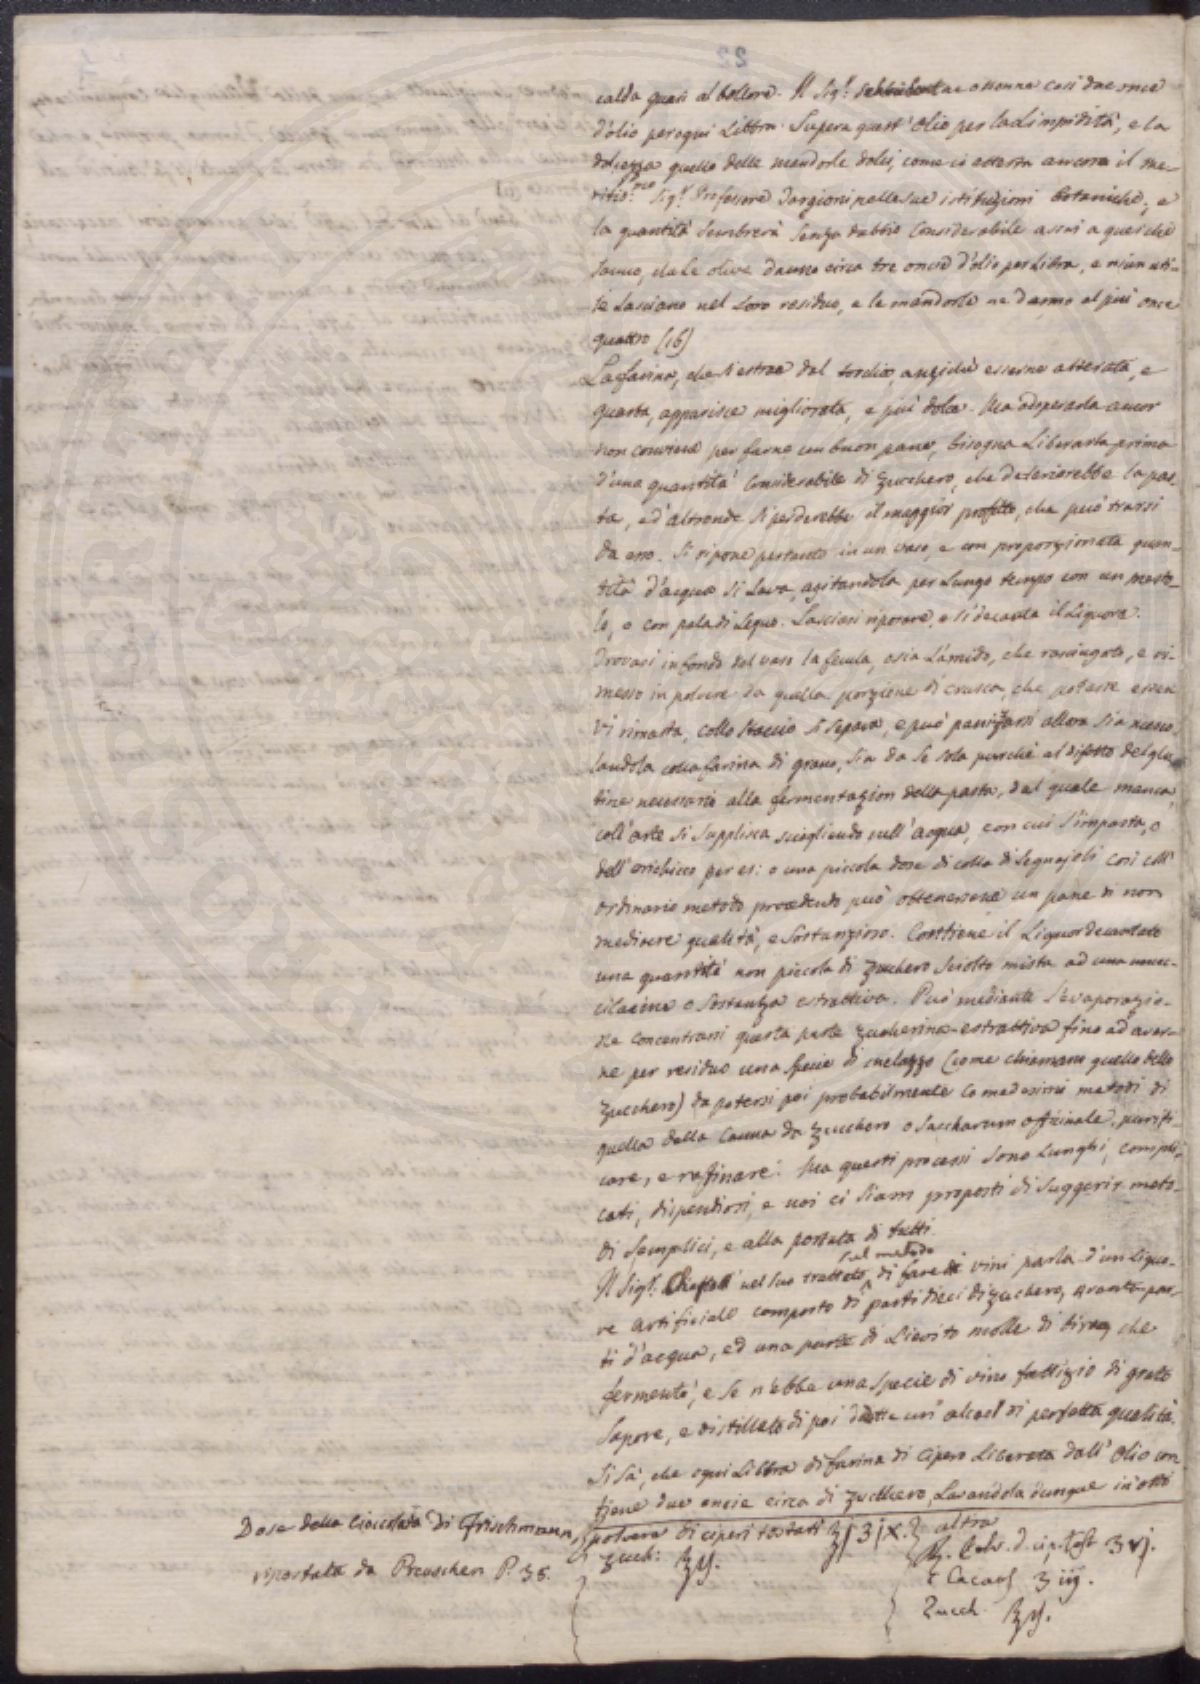 calda quasi al bollore. Il Sig.r ne ottenne così due once
d'olio per ogni Libbra. Supera quest'olio per la Limpidità, e la
dolcezza quello delle mandorle dolci, come ci attesta ancora il me-
ritis.mo Sig.r Professore Targioni nelle sue istituzioni botaniche, e
la quantità sembrerà senza dubbio considerabile assai a quei che
sanno, che le olive danno circa tre oncie d'olio per Libra, e niun uti-
le Lasciano nel Loro residuo, e le mandorle ne danno al più once
quattro (16)
La farina, che si estrae dal torchio, anziché esserne alterata, e
guasta, apparisce migliorata, e più dolce. Ma adoperarla ancor
non conviene per farne un buon pane, bisogna Liberarla prima
d'una quantità Considerabile di zucchero, che deteriorebbe la pas-
ta, ed altronde si perderebbe il maggior profitto, che può trarsi
da esso. Si ripone pertanto in un vaso, e con proporzionata quan-
tità d'acqua si Lava, agitandola per Lungo tempo con un mesto-
lo, o con pala di Legno. Lasciasi riposare, e si decanta il Liquore.
Trovasi in fondo del vaso la fecula, osia L'amido, che rasciugato, e ri-
messo in polvere da quella porzione di crusca, che potasse esser
vi rimasta, collo staccio si separa, e può panizzarsi allora sia mesco-
landola colla farina di grano, sia da se sola purché al difetto del glu
tine necessario alla fermentazion della pasta, del quale manca,
coll'arte si supplisca sciogliendo nell'acqua, con cui s'impasta, o
dell'orichicco per es: o una piccola dose di colla di Legnajoli Così coll'
ordinario metodo procedendo può ottenersene un pane di non
mediocre qualità, e sostanzioso. Contiene il Liquor decantato
una quantità non piccola di zucchero sciolto mista ad una muci-
cilagine o sostanza estrattiva. Può mediante l'evaporazio-
ne concentrarsi questa parte zuccherina-estrattiva fino ad aver-
ne per residuo una specie di melazzo (come chiamano quello dello
zucchero) da potersi poi probabilmente co medesimi metodi di
quella della Canna da zucchero o Saccharum officinale, purifi-
care, e rafinare. Ma questi processi sono Lunghi, compli-
cati, dispendiosi, e noi ci siam proposti di suggerir meto-
di semplici, e alla portata di tutti
sul metodo
Il Sig.r nel suo trattato di fare i vini parla d'un Liquo-
re artificiale composto di parti dieci di zucchero, par-
ti d'acqua, ed una parte di Lievito molle di birra, che
fermentò, e se n'ebbe una specie di vino fattizio di grato
sapore, e distillato di poi dette un'alcool di perfetta qualità.
Si sà, che ogni Libbra di farina di cipero Liberata dall'olio con
tiene due oncie circa di zucchero, Lavandola dunque in otto
Dose della Cioccolata di Frischmann,
riportata da Preuschen P. 36.
polvere di ciperi tostati
zucch:
altra
Polv. d. cip. Tost
Cacao
Zucch.